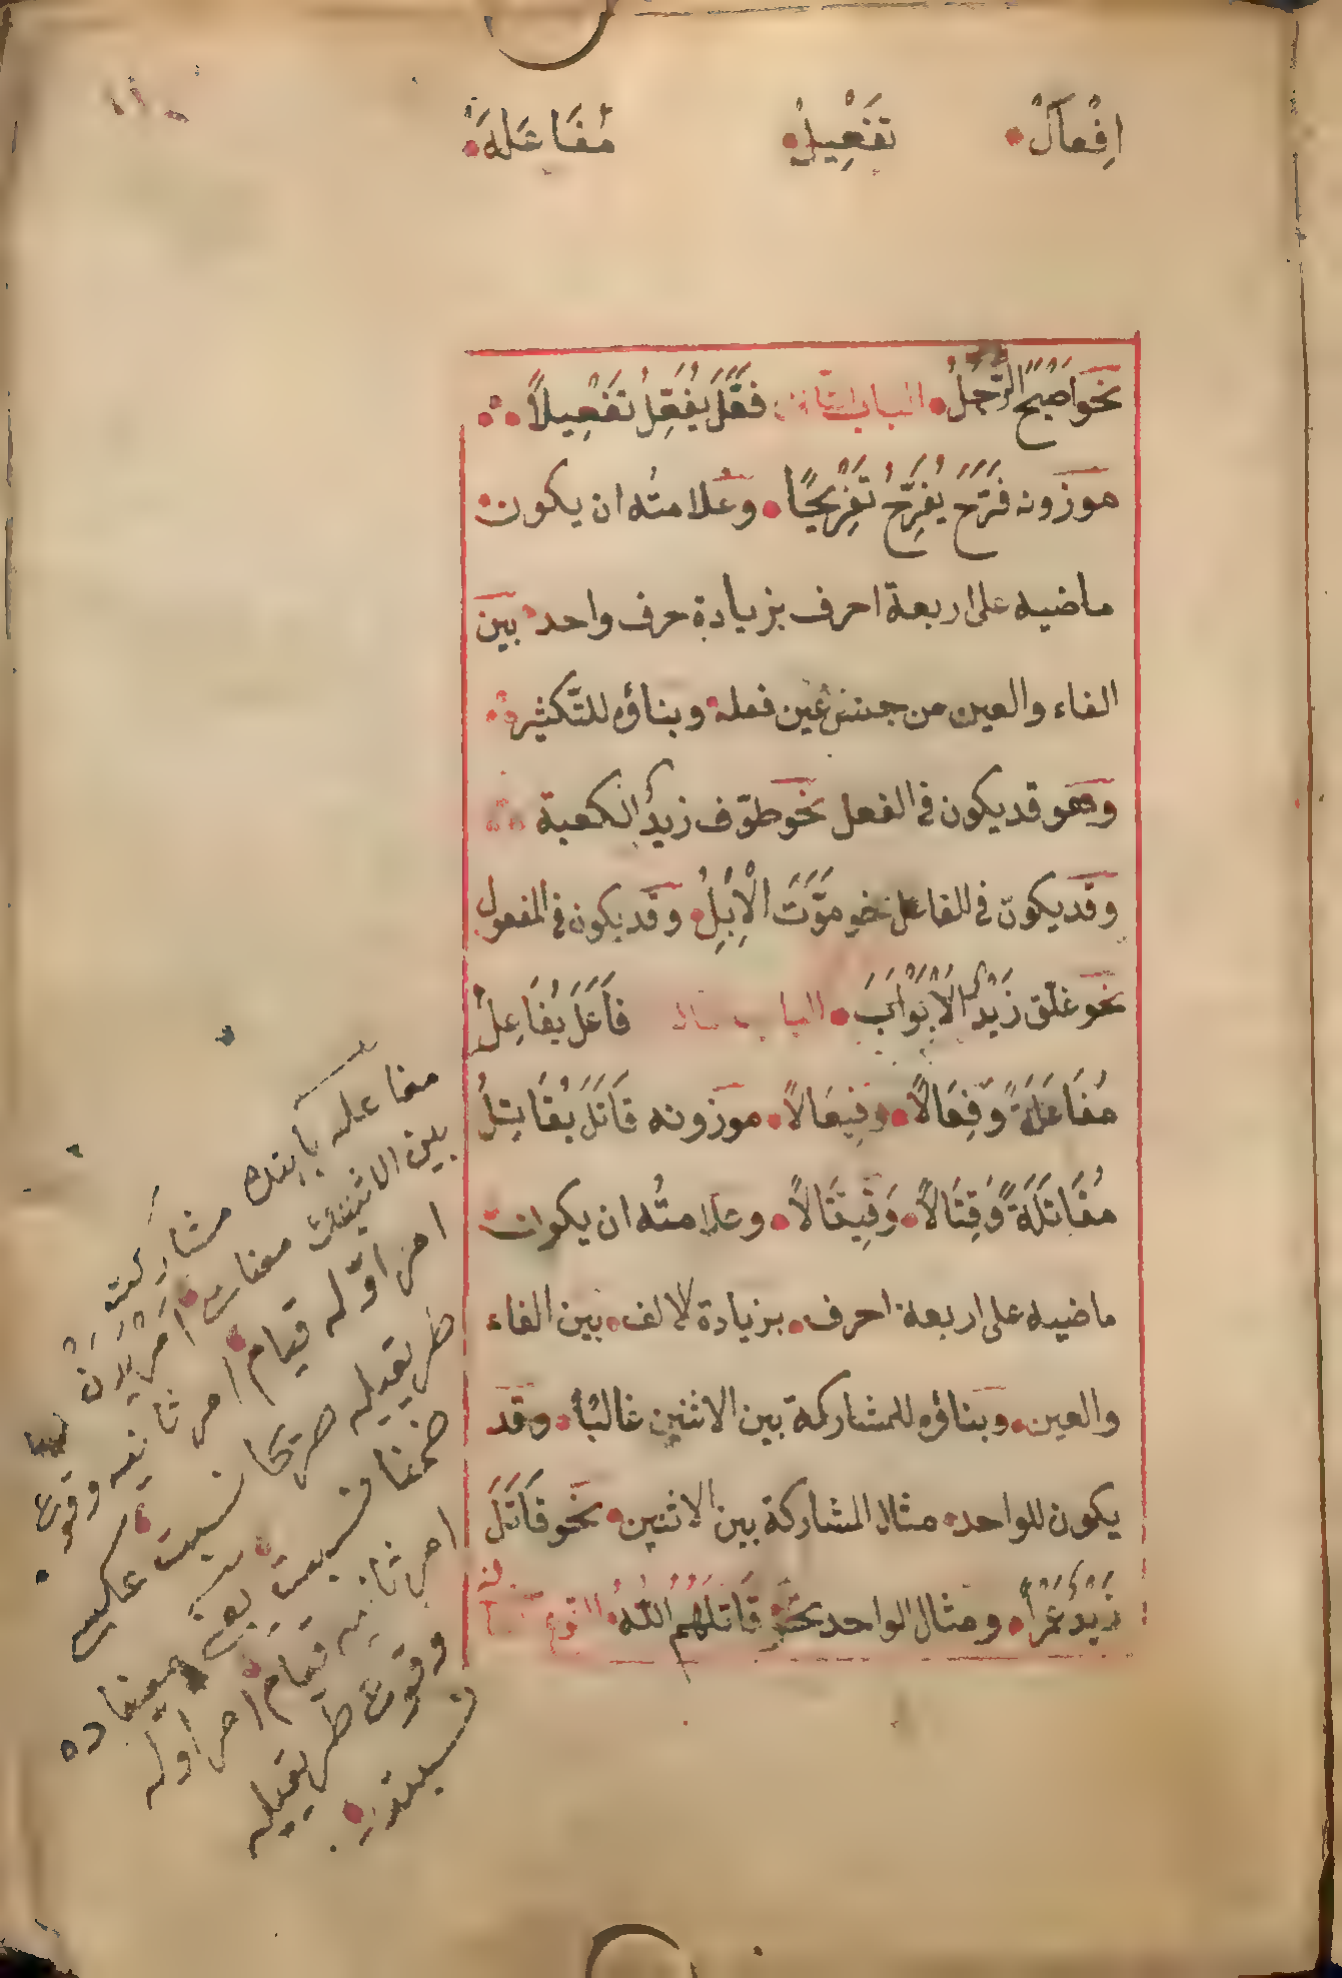 اِفْعَالٌ تَفْعِيلٌ مُفَاعَلَةٌ
نحو اَصْبَحَ الرَّجُلُ الباب الثانى فَعَّلَ يُفَعِّلُ تَفْعِيلاً
موزونه فَرَّحَ يُفَرِّحُ تَفْرِيحًا وعلامتُه ان يكون
ماضيه على اربعة احرف بزيادة حرف واحد بين
الفاء والعين من جنس عين فعله وبناؤه للتّكثير
وهو قد يكون فى الفعل نحو طوّف زيدٌ الكعبة
وقد يكون فى الفاعل نحو مَوَّتَ الْاِبِلُ وقد يكون فى المفعول
نحو غلّق زَيْدٌ الْاَبْوَابَ الباب فَاعَلَ يُفَاعِلُ
مُفَاعَلَةً وَفِعَالاً وَفِيعَالاً موزونه قَاتَلَ يُقَاتِلُ
مُقَاتَلَةً وَقِتَالاً وَقِيتَالاً وعلامتُه ان يكون
ماضيه على اربعة احرف بزيادة الالف بين الفاء
والعين وبناؤه للمشاركة بين الاثنين غالبًا وقد
يكون للواحد مثال المشاركة بين الاثنين نحو قَاتَلَ
زَيْدٌ عَمْرًا ومثال الواحد نحو قَاتَلَهُمُ اللّٰهُ النوع
مفاعله بابنك مشاركتٌ
بين الاثنينك معناسى اَمْرَيْدَنْ
امر اوّله قيام امر ثانيه وقوع
طريقيله صريحا نسبت عكسى
ضمنا نسبت يعنى معناده
امر ثانيه قيام امر اوله
وقوع طريقيله
نسبتدر